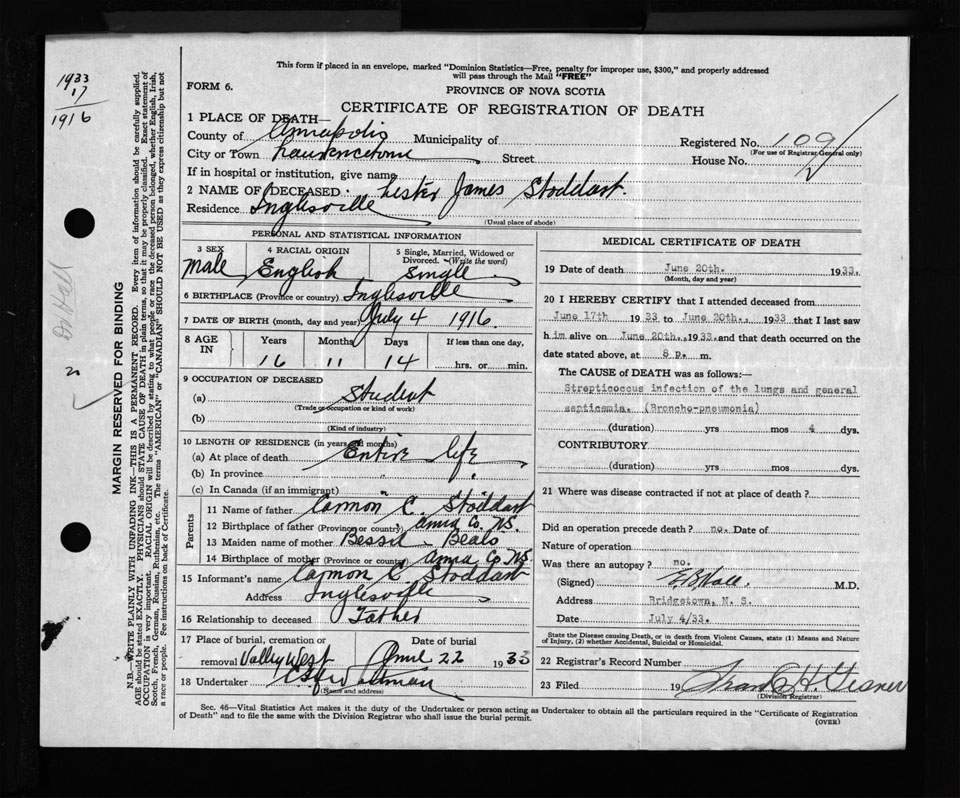 This form if placed in an envelope, marked "Dominion Statistics—Free, penalty for improper use, $300," and properly addressed
will pass through the Mail "FREE"
FORM 6.
PROVINCE OF NOVA SCOTIA
CERTIFICATE OF REGISTRATION OF DEATH
1933
17
1916
Dr Hall
MARGIN RESERVED FOR BINDING
N.B.—WRITE PLAINLY WITH UNFADING INK—THIS IS A PERMANENT RECORD. Every item of information should be carefully supplied.
AGE should be stated EXACTLY. PHYSICIANS should STATE CAUSE OF DEATH in plain terms, so that it may be properly classified. Exact statement of
OCCUPATION is very important. RACIAL ORIGIN will be described by stating to what people or race the deceased person belonged, whether English, Irish,
Scotch, French, German, Russian, Ruthenian, etc. The terms "AMERICAN" or "CANADIAN" SHOULD NOT BE USED as they express citizenship but not
a race or people. See instructions on back of Certificate.
1 PLACE OF DEATH—
County of Annapolis Municipality of Registered No. 109
(For use of Registrar General only)
City or Town Lawrencetown Street House No.
If in hospital or institution, give name
2 NAME OF DECEASED Lester James Stoddart.
Residence Inglisville
(Usual place of abode)
PERSONAL AND STATISTICAL INFORMATION
3 SEX 4 RACIAL ORIGIN 5 Single, Married, Widowed or Divorced. (Write the word)
Male English Single
6 BIRTHPLACE (Province or country) Inglesville
7 DATE OF BIRTH (month, day and year) July 4 1916.
8 AGE IN Years Months Days If less than one day,
16 11 14 hrs. or min.
9 OCCUPATION OF DECEASED
(a) Student
(Trade or occupation or kind of work)
(b)
(Kind of industry)
10 LENGTH OF RESIDENCE (in years and months)
(a) At place of death Entire life
(b) In province " "
(c) In Canada (if an immigrant) "
Parents
11 Name of father Carmon C. Stoddart
12 Birthplace of father (Province or country) Anna Co NS.
13 Maiden name of mother Bessie Beals
14 Birthplace of mother (Province or country) Anna Co NS
15 Informant's name Carmon C Stoddart
Address Inglesville
16 Relationship to deceased Father
17 Place of burial, cremation or Date of burial
removal Valley West June 22 1933
18 Undertaker
(Name and address)
MEDICAL CERTIFICATE OF DEATH
19 Date of death June 20th. 1933.
(Month, day and year)
20 I HEREBY CERTIFY that I attended deceased from
June 17th 1933 to June 20th., 1933 that I last saw
him alive on June 20th., 1933. and that death occurred on the
date stated above, at 8 p. m.
The CAUSE of DEATH was as follows:—
Strepticoccus infection of the lungs and general
septicemia. (Broncho-pneumonia)
(duration) yrs mos 4 dys.
CONTRIBUTORY
(duration) yrs mos dys.
21 Where was disease contracted if not at place of death?
Did an operation precede death? no. Date of
Nature of operation
Was there an autopsy? no.
(Signed) Hall. M.D.
Address Bridgetown, N. S.
Date July 4/33.
State the Disease causing Death, or in death from Violent Causes, state (1) Means and Nature
of Injury, (2) whether Accidental, Suicidal or Homicidal.
22 Registrar's Record Number
23 Filed 19 Frank H. Gesner
(Division Registrar)
Sec. 46—Vital Statistics Act makes it the duty of the Undertaker or person acting as Undertaker to obtain all the particulars required in the "Certificate of Registration
of Death" and to file the same with the Division Registrar who shall issue the burial permit.
(OVER)